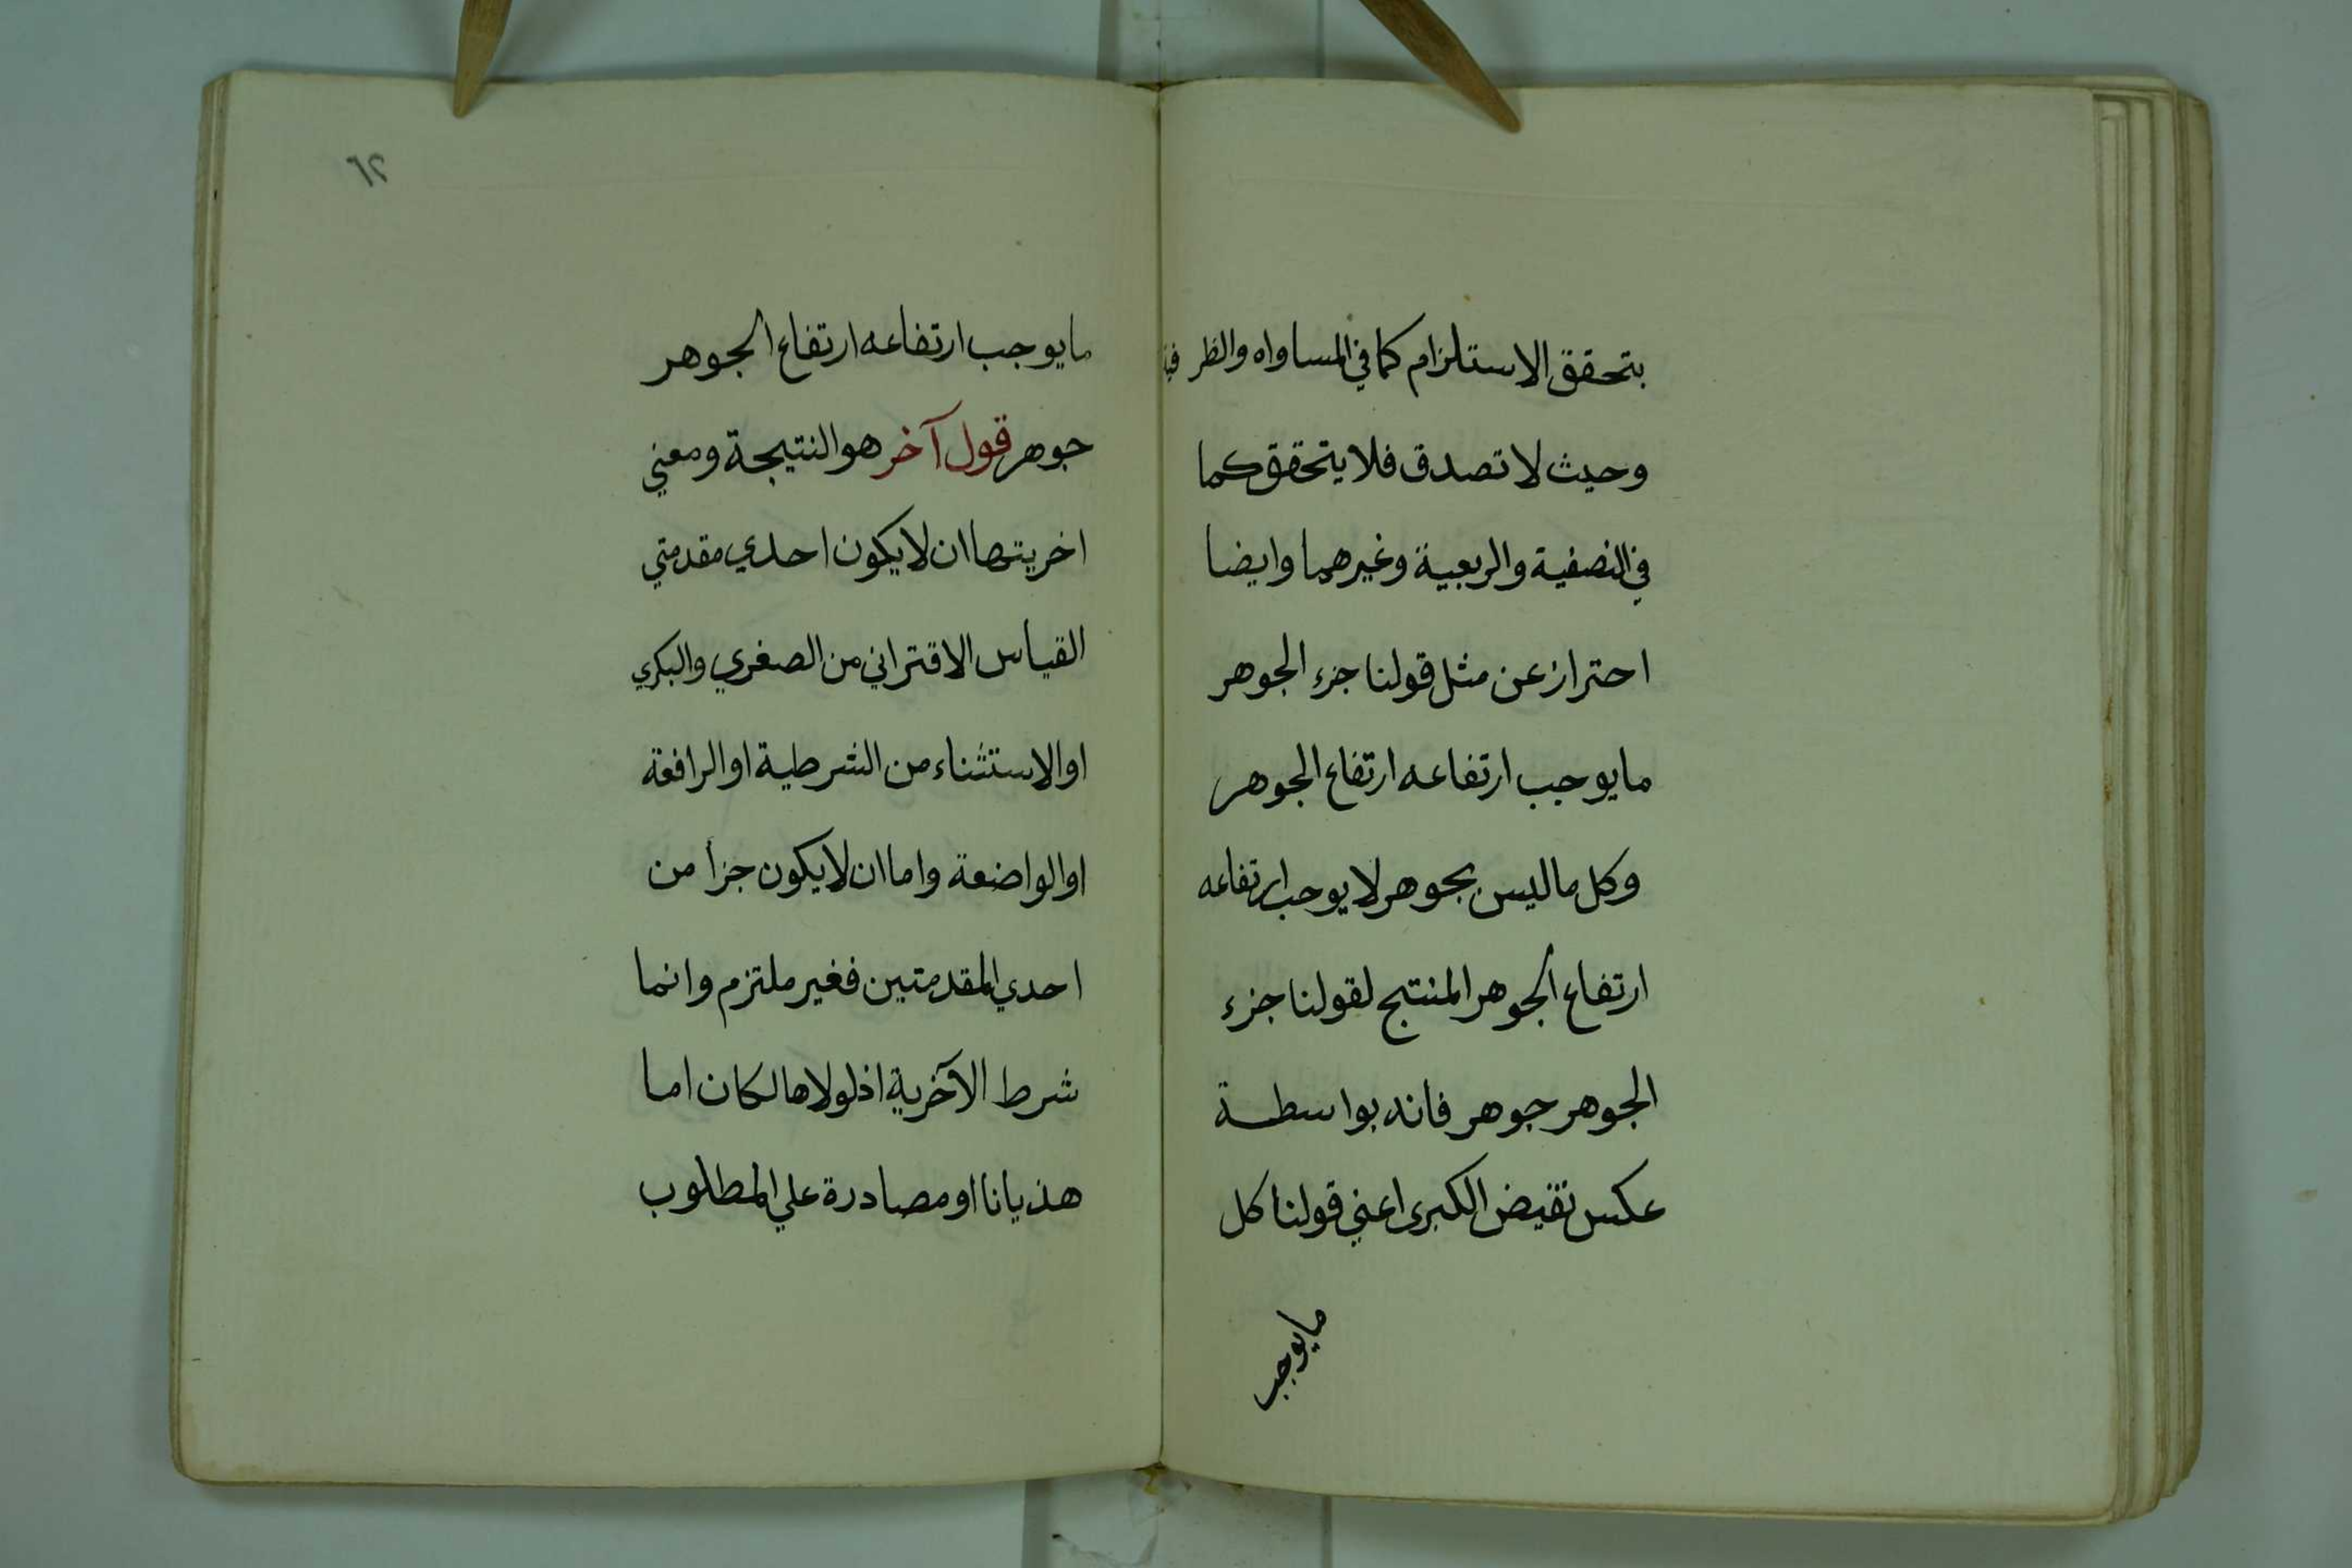 بتحقق الاستلزام كما في المساواه والظرفية
وحيث لا تصدق فلا يتحقق كما
في النصفية والربعية وغيرهما وايضا
احتراز عن مثل قولنا جزء الجوهر
ما يوجب ارتفاعه ارتفاع الجوهر
وكل ما ليس بجوهر لا يوجب ارتفاعه
ارتفاع الجوهر المنتج لقولنا جزء
الجوهر جوهر فانه بواسطة
عكس نقيض الكبرى اعني قولنا كل
ما يوجب
٦٢
ما يوجب ارتفاعه ارتفاع الجوهر
جوهر قول آخر هو النتيجة ومعني
اخريتها ان لا يكون احدي مقدمتي
القياس الاقتراني من الصغري والبكري
او الاستثناء من الشرطية او الرافعة
او الواضعة واما ان لا يكون جزأ من
احدي المقدمتين فغير ملتزم وانما
شرط الآخرية اذ لولاها لكان اما
هذيانا او مصادرة علي المطلوب